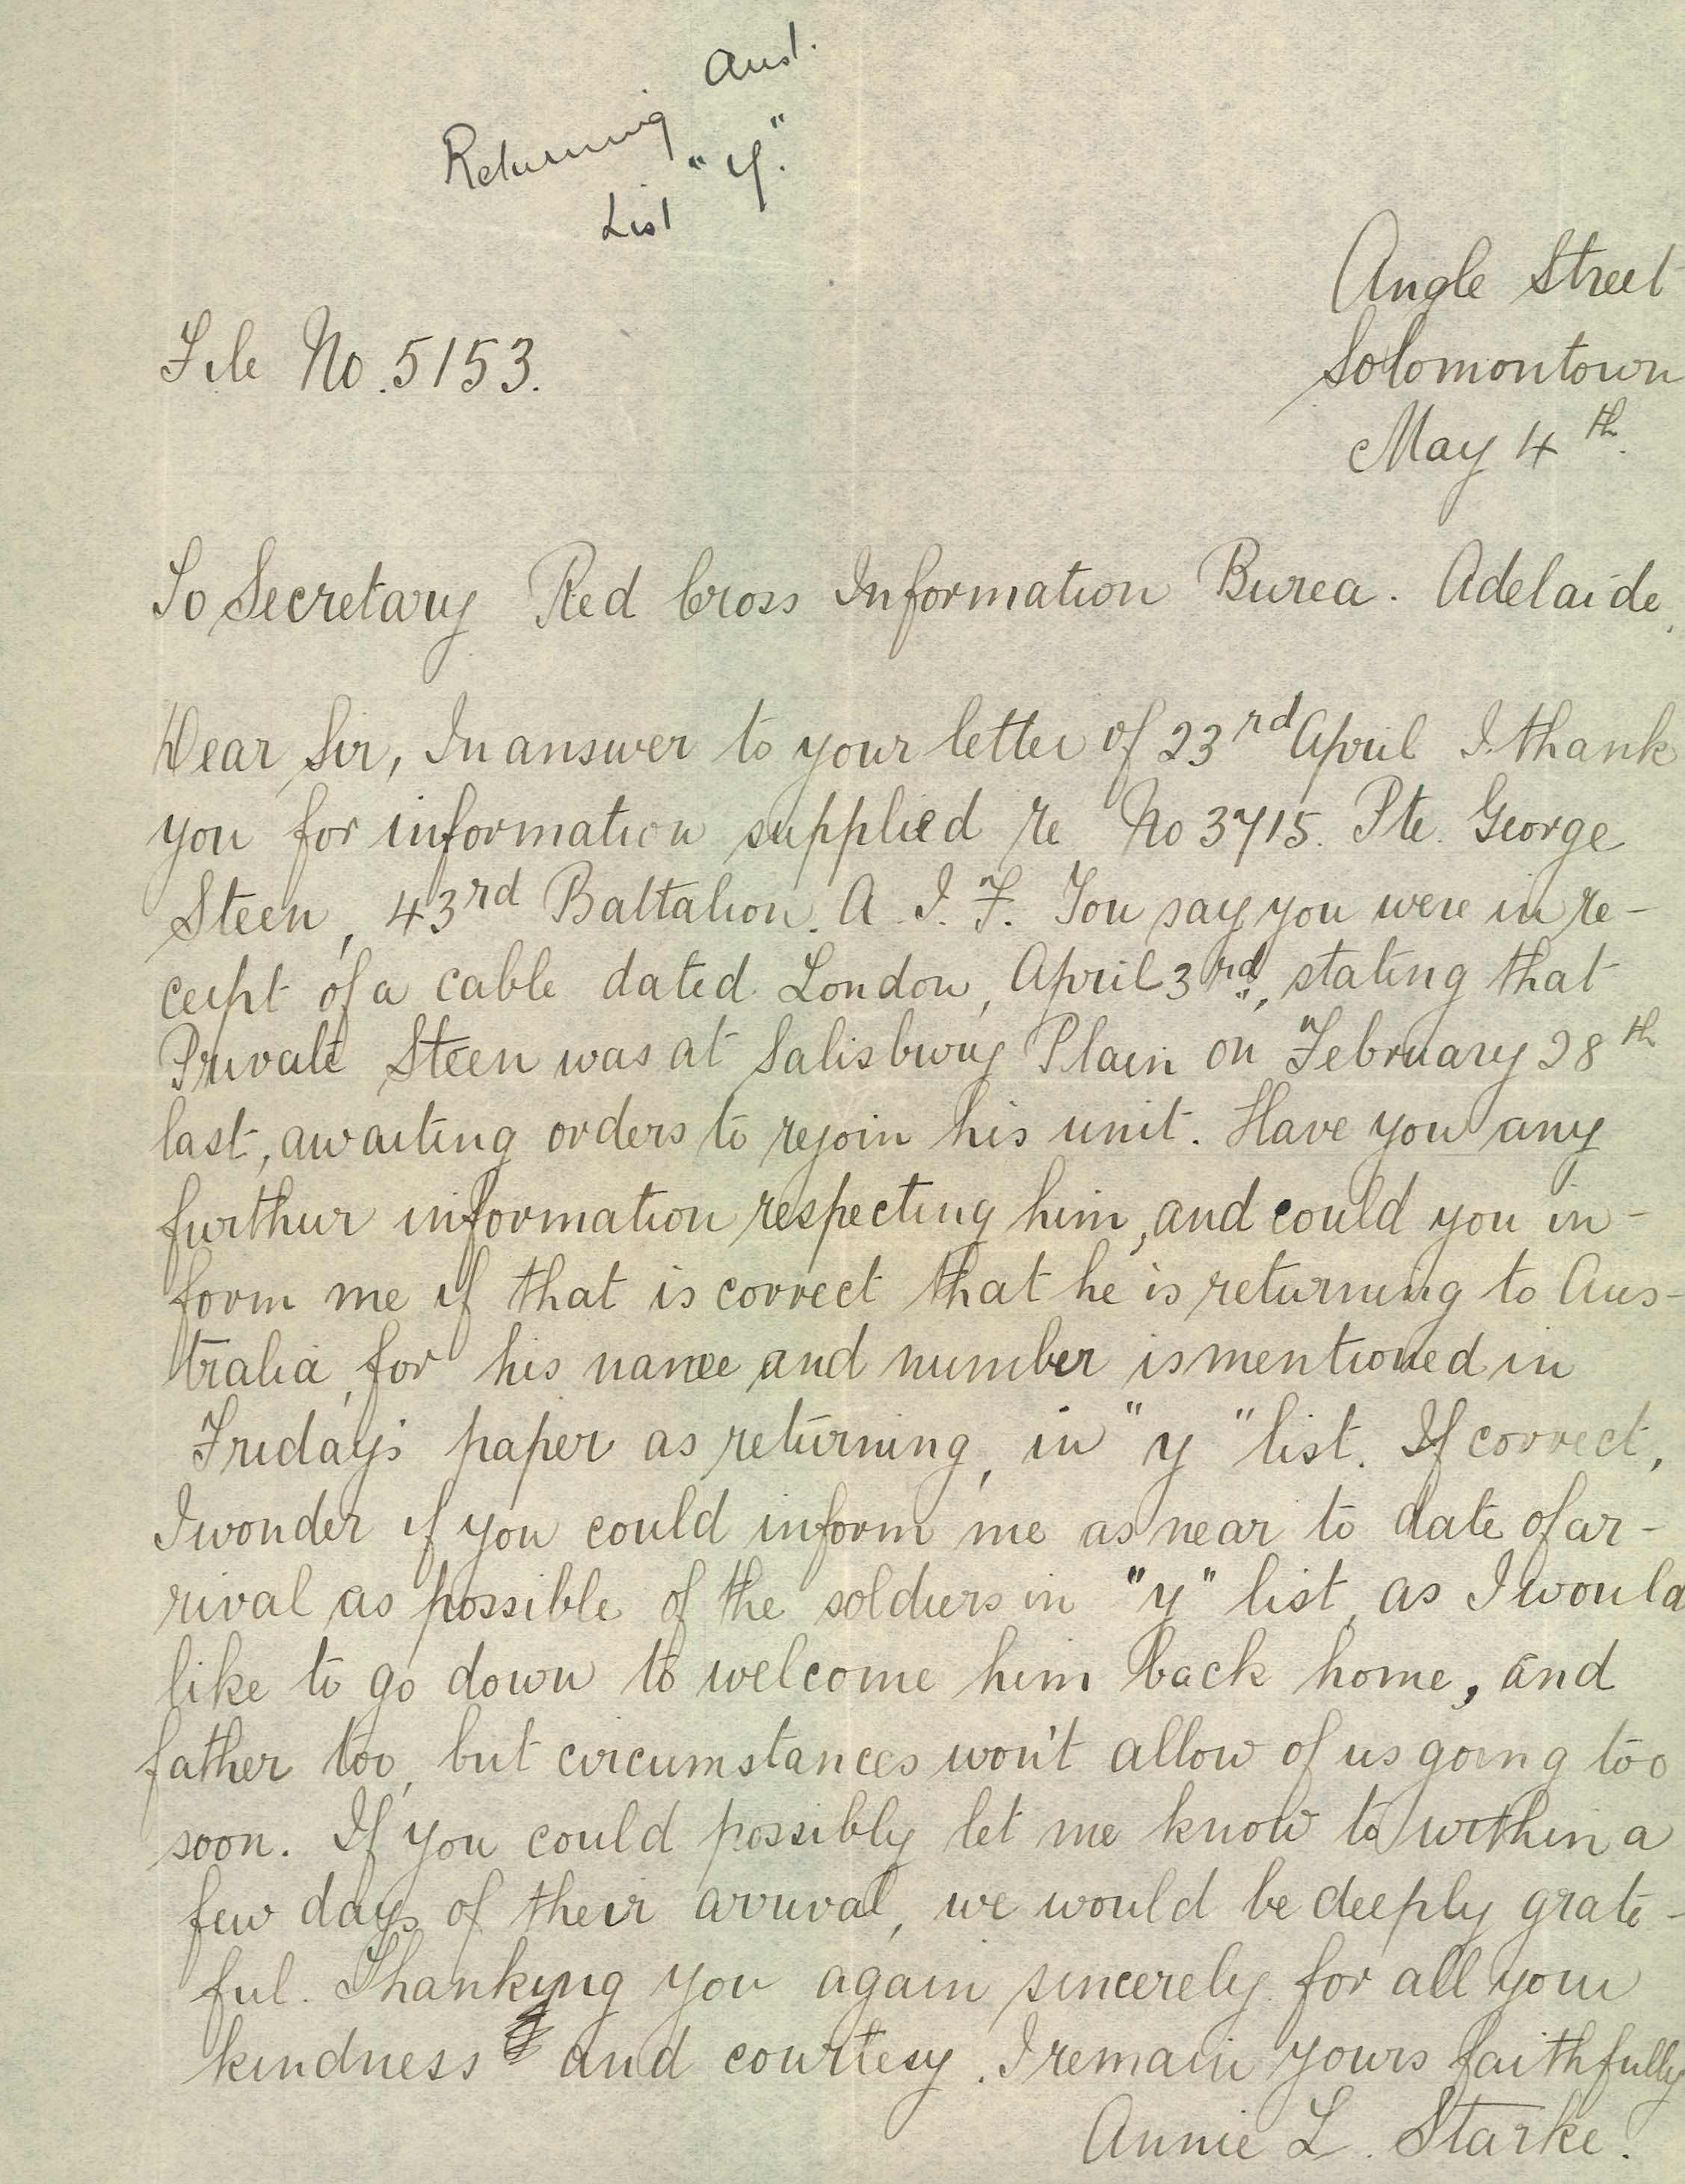 Returning Aust.
List "Y."
Angle Street
Solomontown
May 4th.
File No. 5153.
To Secretary Red Cross Information Burea. Adelaide.
Dear Sir, In answer to your letter of 23rd April I thank
you for information supplied re No 3715. Pte. George
Steen, 43rd Battalion. A. I. F. You say you were in re-
ceipt of a cable dated London, April 3rd, stating that
Private Steen was at Salisbury Plain on February 28th
last, awaiting orders to rejoin his unit. Have you any
furthur information respecting him, and could you in-
form me if that is correct that he is returning to Aus-
tralia, for his name and number is mentioned in
Friday's paper as returning, in "y" list. If correct,
I wonder if you could inform me as near to date of ar-
rival as possible of the soldiers in "y" list, as I would
like to go down to welcome him back home, and
father too, but circumstances won't allow of us going too
soon. If you could possibly let me know to within a
few days of their arrival, we would be deeply grate-
ful. Thanking you again sincerely for all your
kindness and courtesy. I remain yours faithfully
Annie L. Starke.